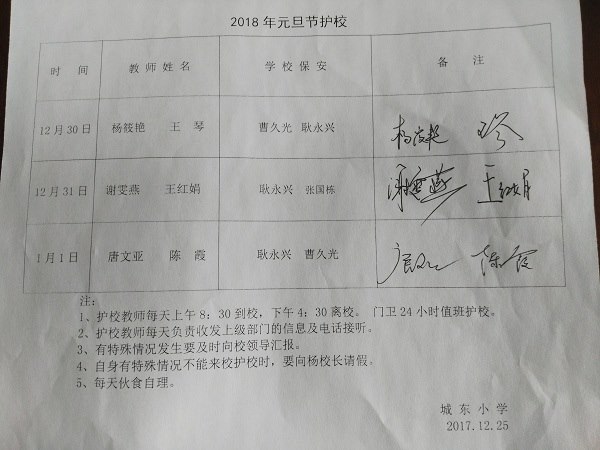 2018 年元旦节护校
时 间 教 师 姓 名 学 校 保 安 备 注
12 月 30 日 杨筱艳 王 琴 曹久光 耿永兴 杨筱艳
12 月 31 日 谢雯燕 王红娟 耿永兴 张国栋 谢雯燕 王红娟
1 月 1 日 唐文亚 陈 霞 耿永兴 曹久光 陈霞
注：
1、护校教师每天上午 8：30 到校，下午 4：30 离校。 门卫 24 小时值班护校。
2、护校教师每天负责收发上级部门的信息及电话接听。
3、有特殊情况发生要及时向校领导汇报。
4、自身有特殊情况不能来校护校时，要向杨校长请假。
5、每天伙食自理。
城 东 小 学
2017.12.25